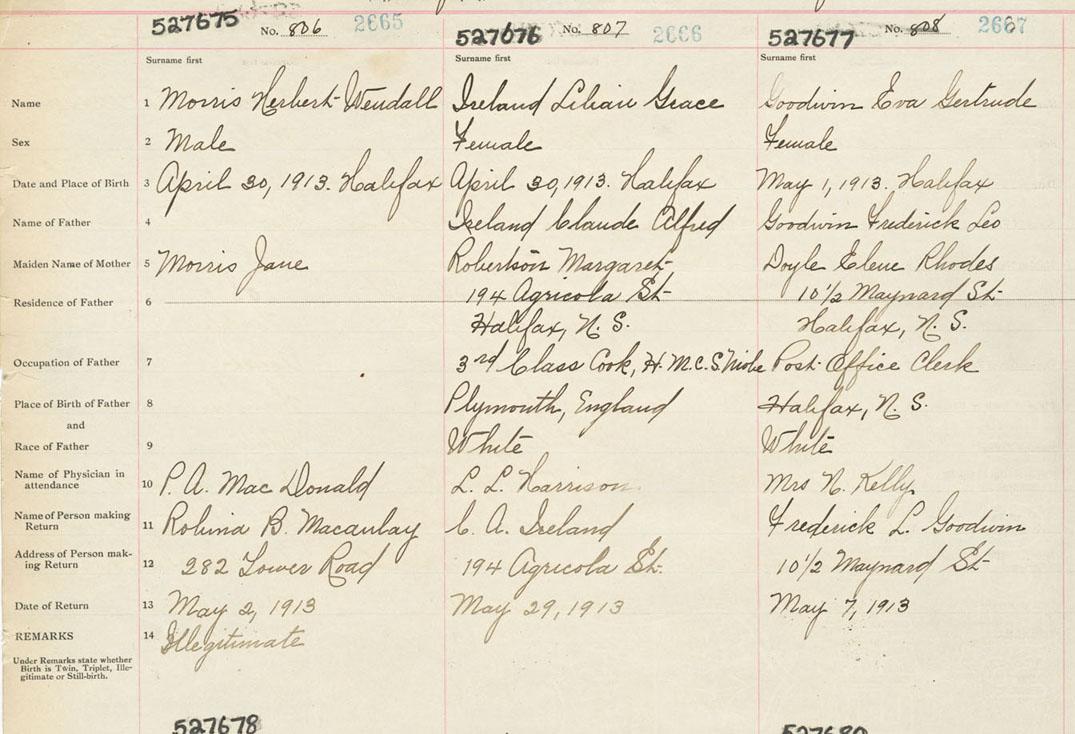 527675 No. 806 2665 527676 No. 807 2666 527677 No. 808 2667
Surname first Surname first Surname first
Name 1 Morris Herbert Wendall Ireland Lilian Grace Goodwin Eva Gertrude
Sex 2 Male Female Female
Date and Place of Birth 3 April 30, 1913. Halifax April 30, 1913. Halifax May 1, 1913. Halifax
Name of Father 4 Ireland Claude Alfred Goodwin Frederick Leo
Maiden Name of Mother 5 Morris Jane Robertson Margaret Doyle Elene Rhodes
Residence of Father 6 194 Agricola St. 10½ Maynard St.
Halifax, N. S. Halifax, N. S.
Occupation of Father 7 3rd Class Cook, H.M.C.S. Niobe Post Office Clerk
Place of Birth of Father 8 Plymouth, England Halifax, N. S.
and
Race of Father 9 White White
Name of Physician in attendance 10 P. A. Mac Donald L. L. Harrison Mrs N. Kelly
Name of Person making Return 11 Robina B. Macaulay C. A. Ireland Frederick L. Goodwin
Address of Person mak-
ing Return 12 282 Lower Road 194 Agricola St. 10½ Maynard St
Date of Return 13 May 2, 1913 May 29, 1913 May 7, 1913
REMARKS 14 Illegitimate
Under Remarks state whether
Birth is Twin, Triplet, Ille-
gitimate or Still-birth.
527678